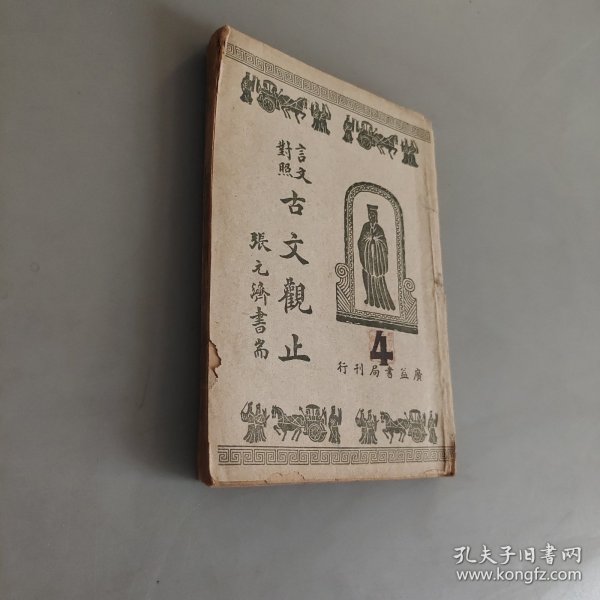 言文
對照
古文觀止
張元濟書耑
4
廣益書局刊行
孔夫子旧书网
www.kongfz.com